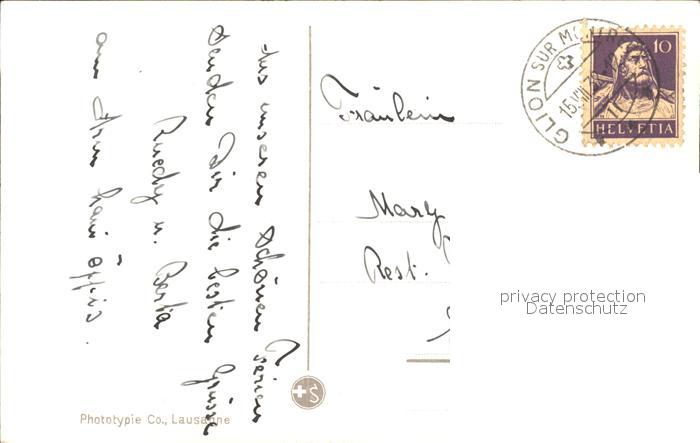 Aus unseren schönen Ferien
senden Dir die besten Grüsse
Ruedy u. Berta
Fräulein
Mary
Rest.
GLION SUR MONTREUX
15.VIII
10
HELVETIA
privacy protection
Datenschutz
Phototypie Co., Lausanne
S